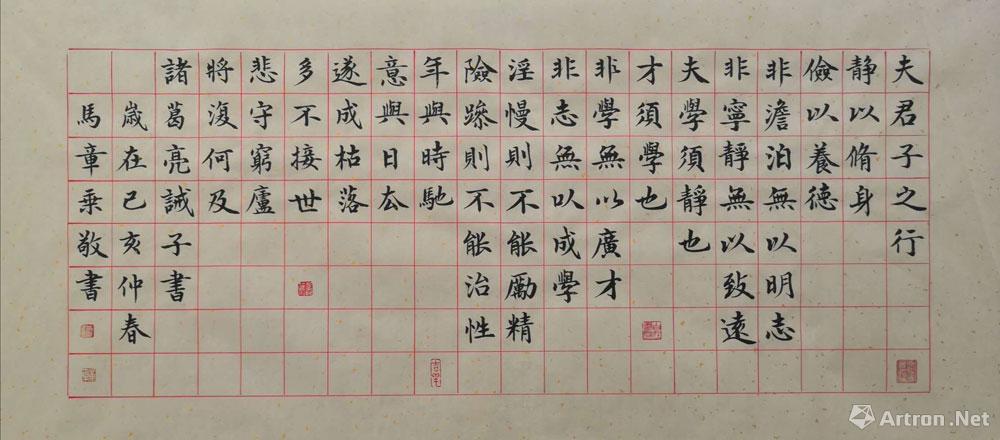 夫君子之行
静以脩身
儉以養德
非澹泊無以明志
非寧靜無以致遠
夫學須靜也
才須學也
非學無以廣才
非志無以成學
淫慢則不能勵精
險躁則不能治性
年與時馳
意與日去
遂成枯落
多不接世
悲守窮廬
將復何及
諸葛亮誡子書
歲在己亥仲春
馬章乘敬書
Artron.Net